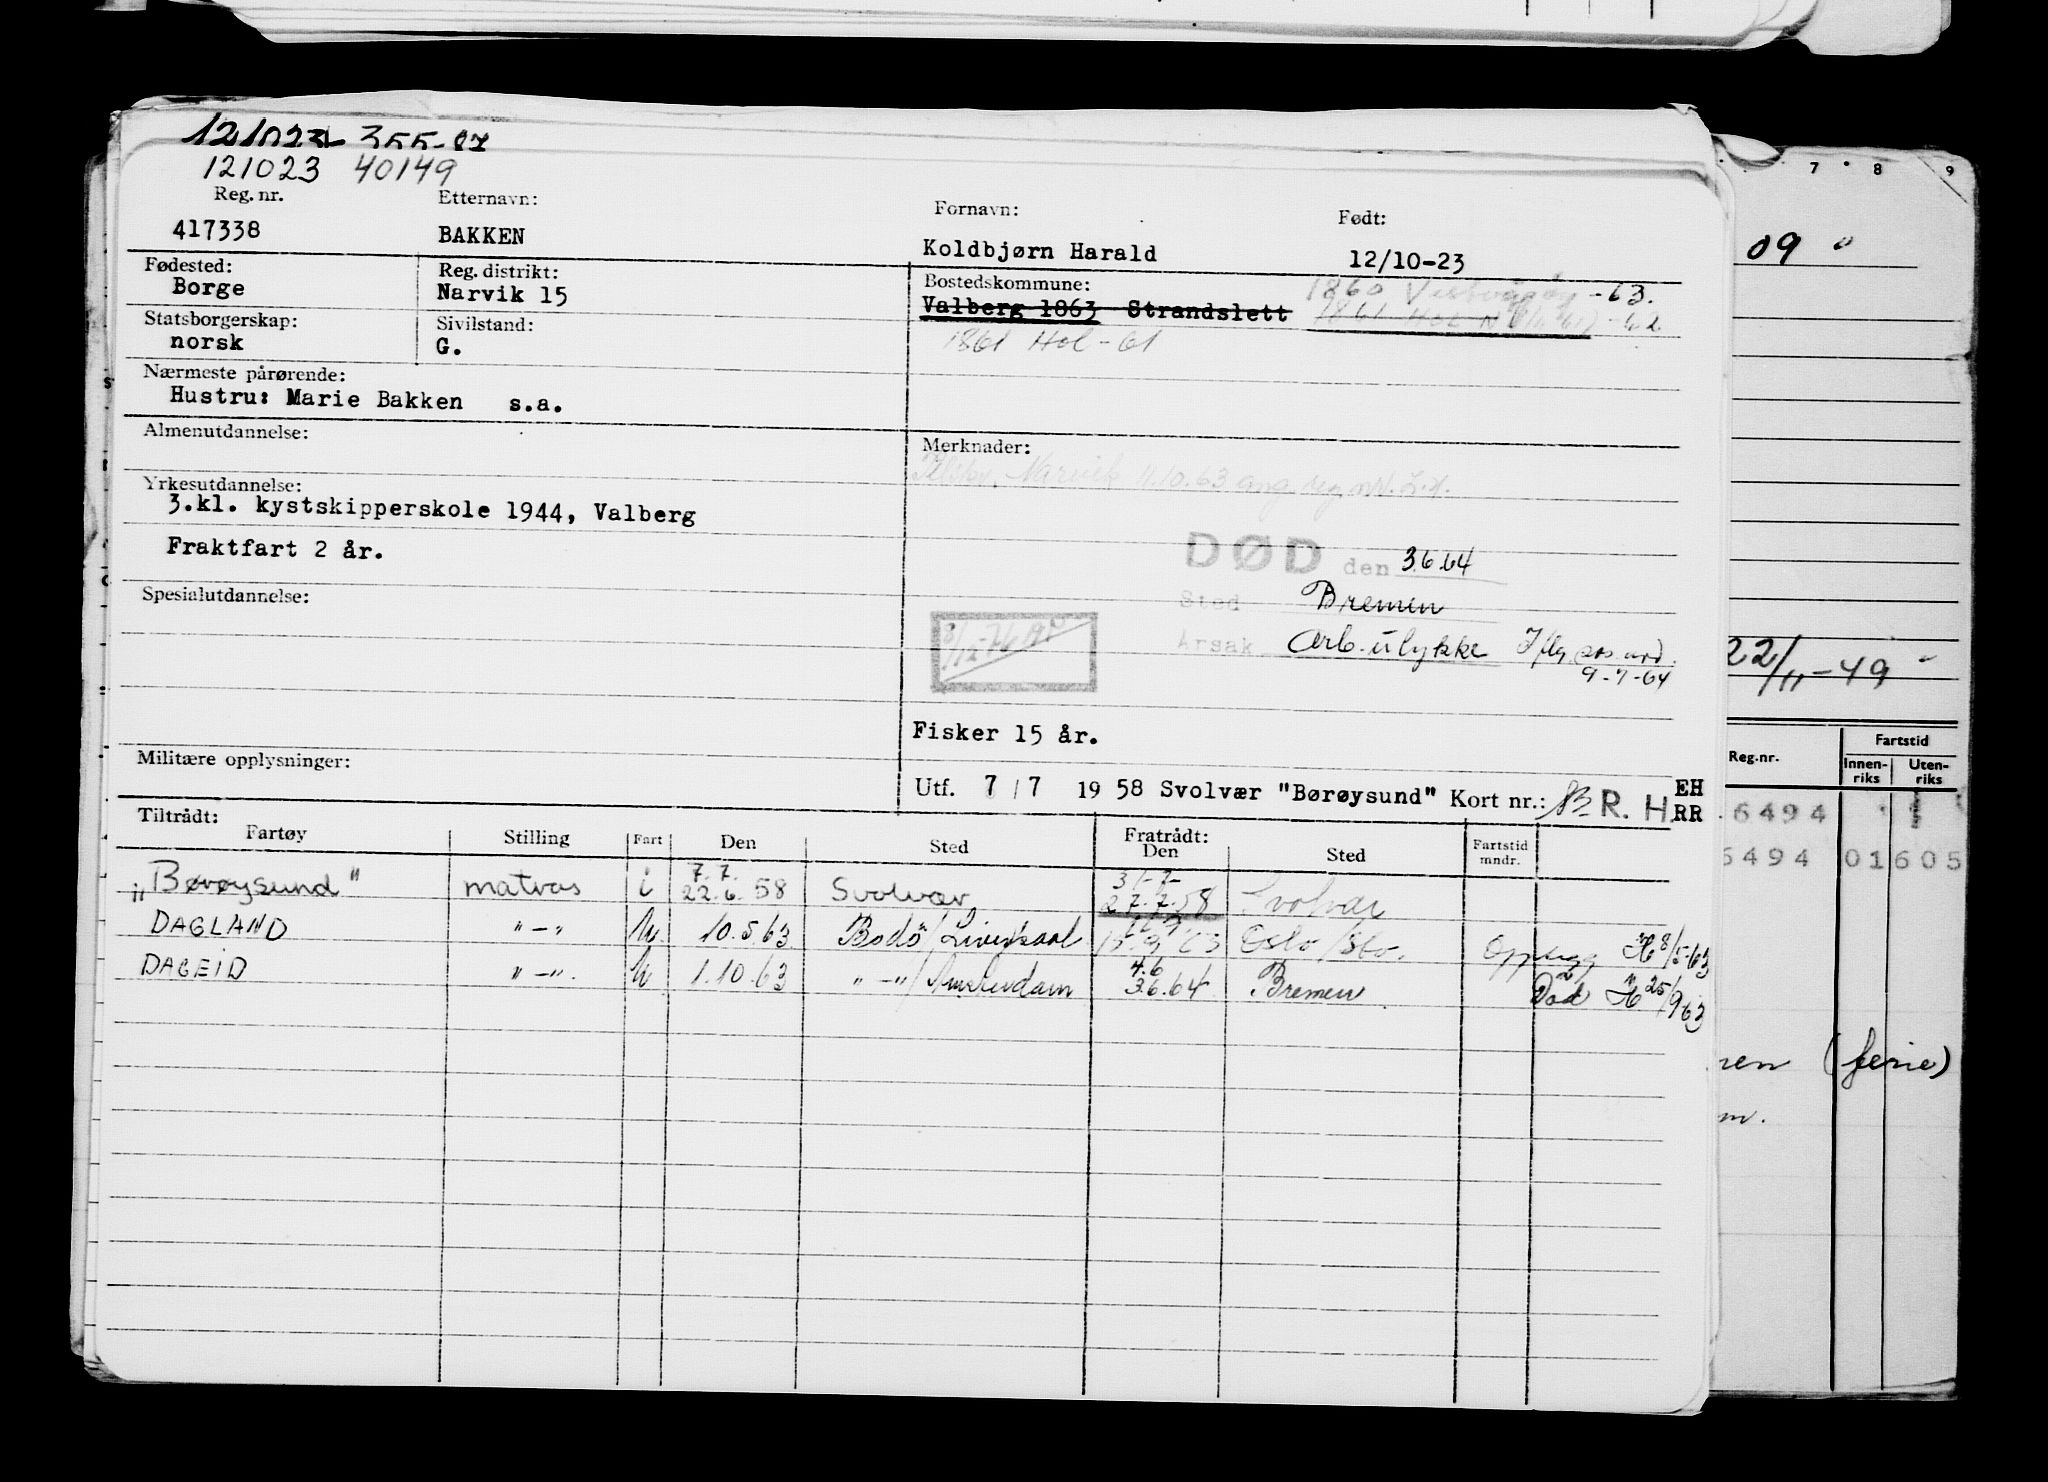 121023 355-87
121023 40149
Reg. nr. Etternavn: Fornavn: Født:
417338 BAKKEN Koldbjørn Harald 12/10-23
Fødested: Reg. distrikt: Bostedskommune: 1860 Vestvågøy -63.
Borge Narvik 15 Valberg 1863 Strandslett 1861 Hol
Statsborgerskap: Sivilstand: 1861 Hol - 61
norsk G.
Nærmeste pårørende:
Hustru: Marie Bakken s.a.
Almenutdannelse: Merknader:
Narvik 11.10.63 ang.
Yrkesutdannelse:
3.kl. kystskipperskole 1944, Valberg
Fraktfart 2 år.
DØD den 3.6.64
Spesialutdannelse:
Sted Bremen
Årsak Arb. ulykke Iflg.
9-7-64
Fisker 15 år.
Militære opplysninger:
Utf. 7/7 1958 Svolvær "Børøysund" Kort nr.: R. H. EH
RR
Tiltrådt: Fratrådt:
Fartøy Stilling Fart Den Sted Den Sted Fartstid mndr.
7.7. 31-7-
„Børøysund" matros i 22.6.58 Svolvær 27.7.58 Svolvær
DAGLAND "-" U. 10.5.63 Bodö/Liverpool 63 Oslo/Sbo. Oppsagt H 8/5-63
4.6
DAGEID "-". U 1.10.63 "-"/Amsterdam 3.6.64 Bremen Död H 25/9 63
7 8 9
09 "
22/11-49 "
Reg.nr. Fartstid
Innen-riks Uten-riks
6494
6494 01605
(ferie)
m.